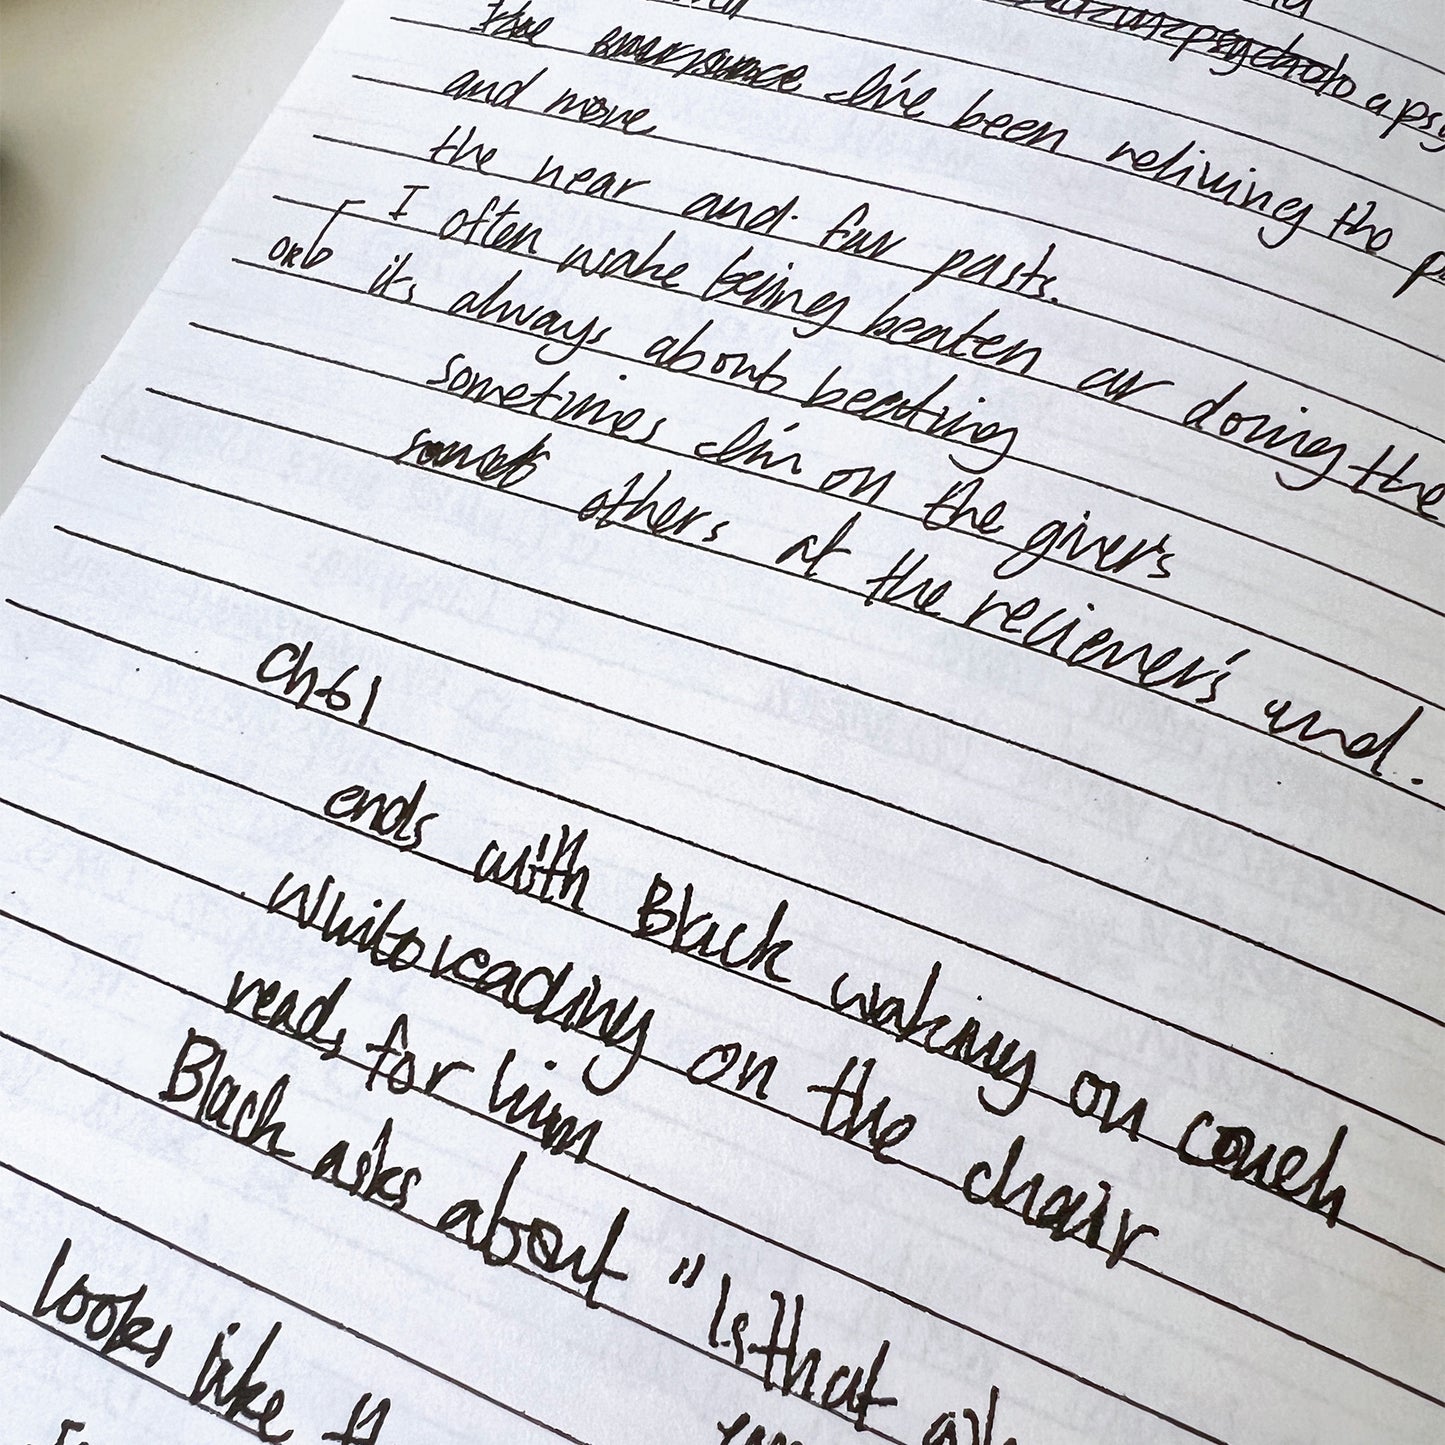 a psy
the I've been reliving the
and more
the near and far pasts.
I often wake being beaten or doing the
only it's always about beating
sometimes I'm on the giver's
others at the reciever's and.
Ch61
ends with Black waking on couch
White reading on the chair
reads for him
Black asks about "Is that
looks like